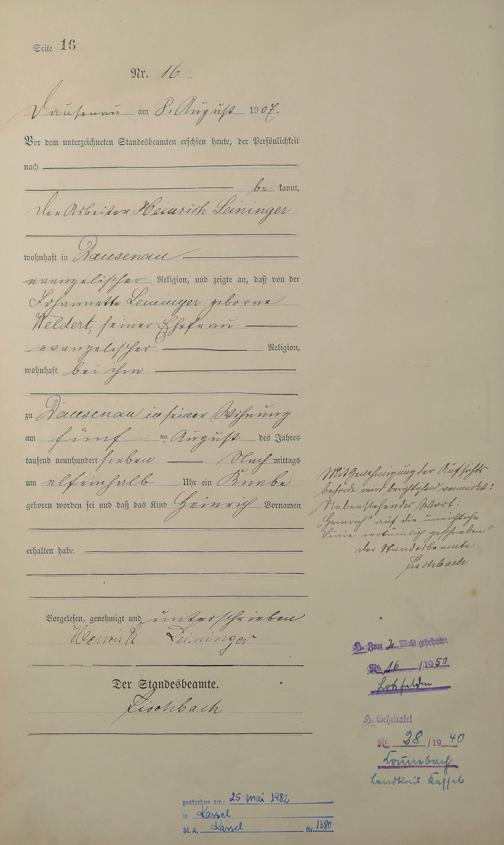 Seite 16
Nr. 16
Dausenau am 8. August 1907.
Vor dem unterzeichneten Standesbeamten erschien heute, der Persönlichkeit
nach
be kannt,
der Arbeiter Heinrich Leininger
wohnhaft in Dausenau
evangelischer Religion, und zeigte an, daß von der
Johannette Leininger geborne
Weldert, seiner Ehefrau
evangelischer Religion,
wohnhaft bei ihm
zu Dausenau in seiner Wohnung
am fünf ten August des Jahres
tausend neunhundert sieben Nach mittags
um elfeinhalb Uhr ein Knabe
geboren worden sei und daß das Kind Heinrich Vornamen
erhalten habe.
Mit Genehmigung der Aufsichts
behörde wird berichtigend vermerkt:
Nebenstehendes Wort:
"Heinrich" auf die unrichtige
Linie irrtümlich geschrieben
Der Standesbeamte
Fischbach
Vorgelesen, genehmigt und unterschrieben
Heinrich Leininger
Der Standesbeamte.
Fischbach
Nr. 16 /1950
Lohfelden
Geheiratet
Nr. 28 /1940
Crumbach
Landkreis Kassel
gestorben am: 25. Mai 1982
in Kassel
St. A. Kassel Nr. 1380